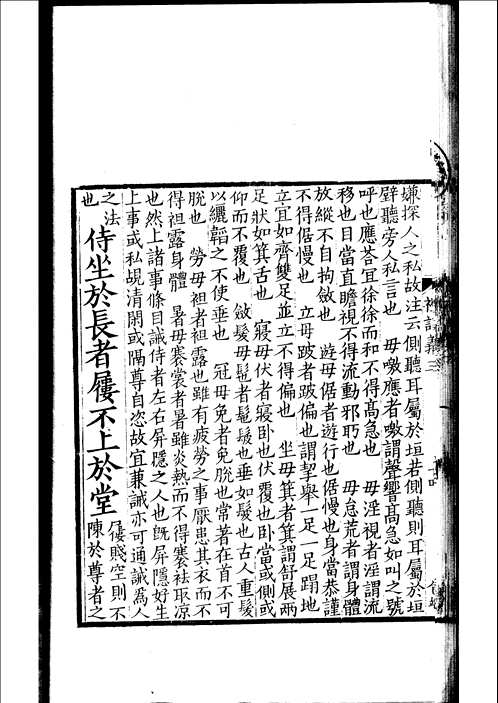 嫌探人之私故注云側聽耳屬於垣若側聽則耳屬於垣
壁聽旁人私言也　毋噭應者噭謂聲響髙急如叫之號
呼也應荅宜徐徐而和不得髙急也　毋淫視者淫謂流
移也目當直瞻視不得流動邪眄也　毋怠荒者謂身體
放縱不自拘斂也　遊毋倨者遊行也倨慢也身當恭謹
不得倨慢也　立毋跛者跛偏也謂挈舉一足一足蹋地
立宜如齊雙足並立不得偏也　坐毋箕者箕謂舒展兩
足狀如箕舌也　寢毋伏者寢卧也伏覆也卧當或側或
仰而不覆也　斂髮毋髢者髢髲也垂如髲也古人重髮
以纚韜之不使垂也　冠毋免者免脫也常著在首不可
脫也　勞毋袒者袒露也雖有疲勞之事厭患其衣而不
得袒露身體　暑毋褰裳者暑雖炎熱而不得褰袪取凉
也然上諸事條目誡侍者左右屏隱之人也旣屏隱好生
上事或私覘清閑或隔尊自恣故宜兼誡亦可通誡爲人
之法
也
侍坐於長者屨不上於堂
屨賤空則不
陳於尊者之
禮記義三